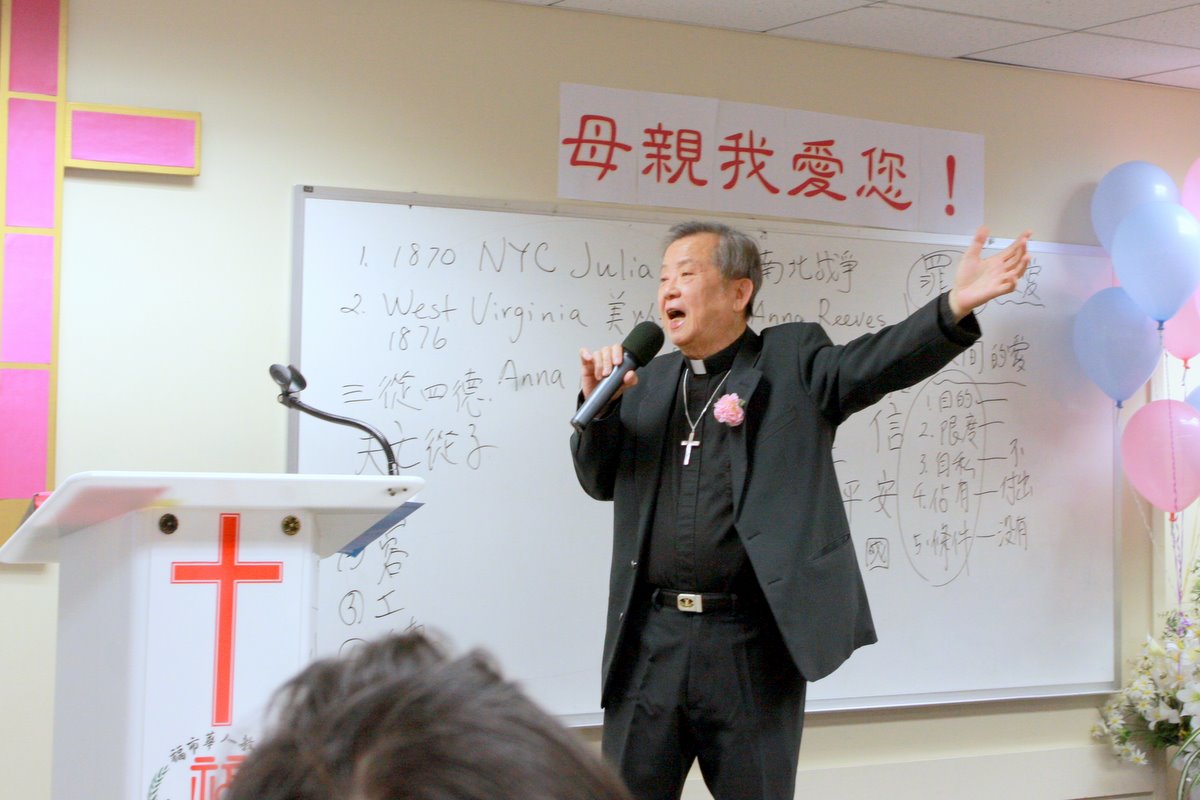 母親我愛您！
1. 1870 NYC Julia
南北战爭
罪
愛
2. West Virginia 美
Anna Reeves
1876
間的愛
三從四德. Anna
夫亡從子
信
平安
1. 目的 —
2. 限度 —
3. 自私 — 不
4. 佔有 — 付出
5. 條件 — 没有
容
③ 工
福市華人教
福